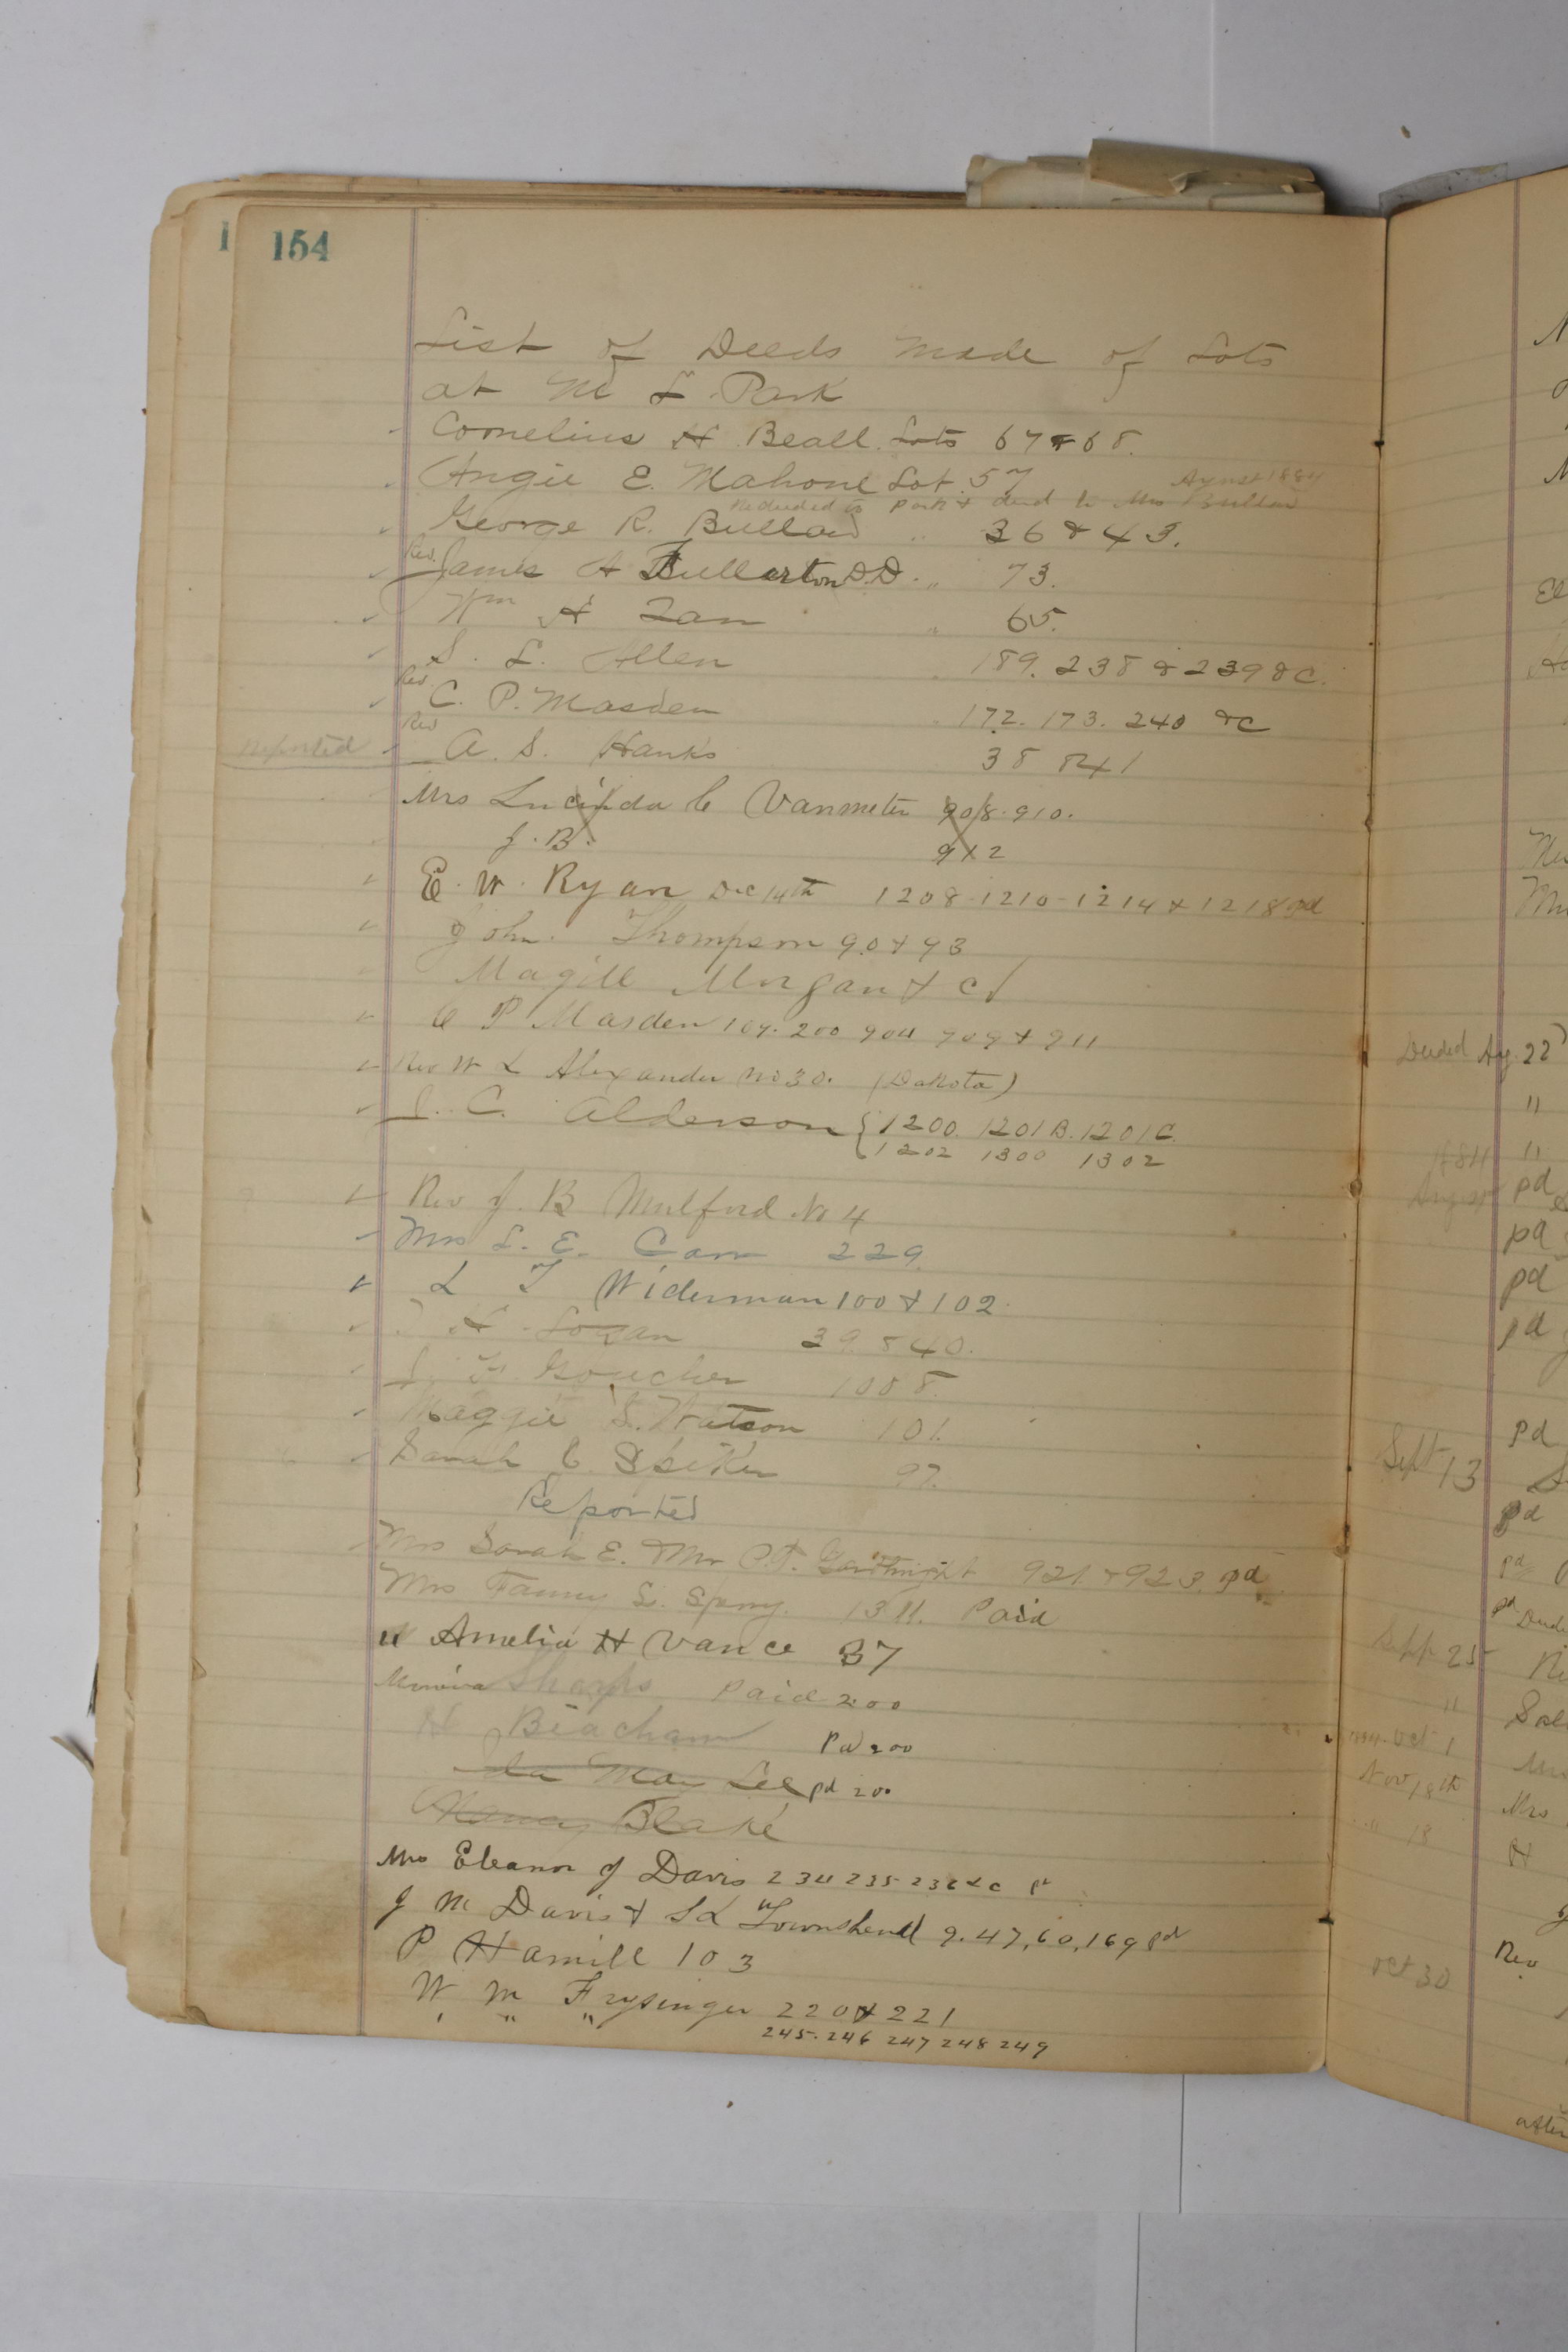 154
List of Deeds Made of Lots
at M L Park
Cornelius H Beall Lots 67 & 68.
Angie E. Mahone Lot 57 August 1884
Redeeded to Park & deed to Mrs Bullard
George R. Bullard " 36 & 43.
Rev. James A Fullerton D.D. " 73.
Wm H Zan " 65.
S. L. Allen " 189. 238 & 239 & C.
Rev C. P. Masden " 172. 173. 240 &C
Reported Rev A. S. Hanks 38 R41
Mrs Lucinda C Vanmeter 908. 910.
J. B. 912
E. W. Ryan Dec 14th 1208-1210-1214 & 1218 pd
John Thompson 90 & 93
Magill Morgan & C
C P Masden 109. 200 904 909 & 911
Rev W L Alexander No 30. (Dakota)
J. C. Alderson { 1200. 1201B. 1201C.
1202 1300 1302
Rev J. B Mulford No 4
Mrs L. E. Carr 229.
L T Widerman 100 & 102.
H Logan 39. & 40.
J. F. Goucher 1008.
Maggie S. Watson 101.
Sarah C. Spiker 97.
Reported
Mrs Sarah E. & Mr P. T. 921. & 923. pd
Mrs Fanny L. Sperry. 1311. Paid
" Amelia H Vance 37
Minerva Sharps Paid 200
H Beacham Pd 200
Ida May Lee pd 200
Blake
Mrs Eleanor J Davis 234 235-236 & C pd
J M Davis & S L Townshend 9. 47, 60, 169 pd
P Hamill 103
W M Frysinger 220 & 221
" " " 245. 246 247 248 249
Deeded Aug. 22
"
1884 "
August pd
pd
pd
pd
pd
Sept 13
pd
pd
pd
Sept 25
"
1884. Oct 1
Nov 18th
Mrs
" 18 H
Rev
Oct 30
after